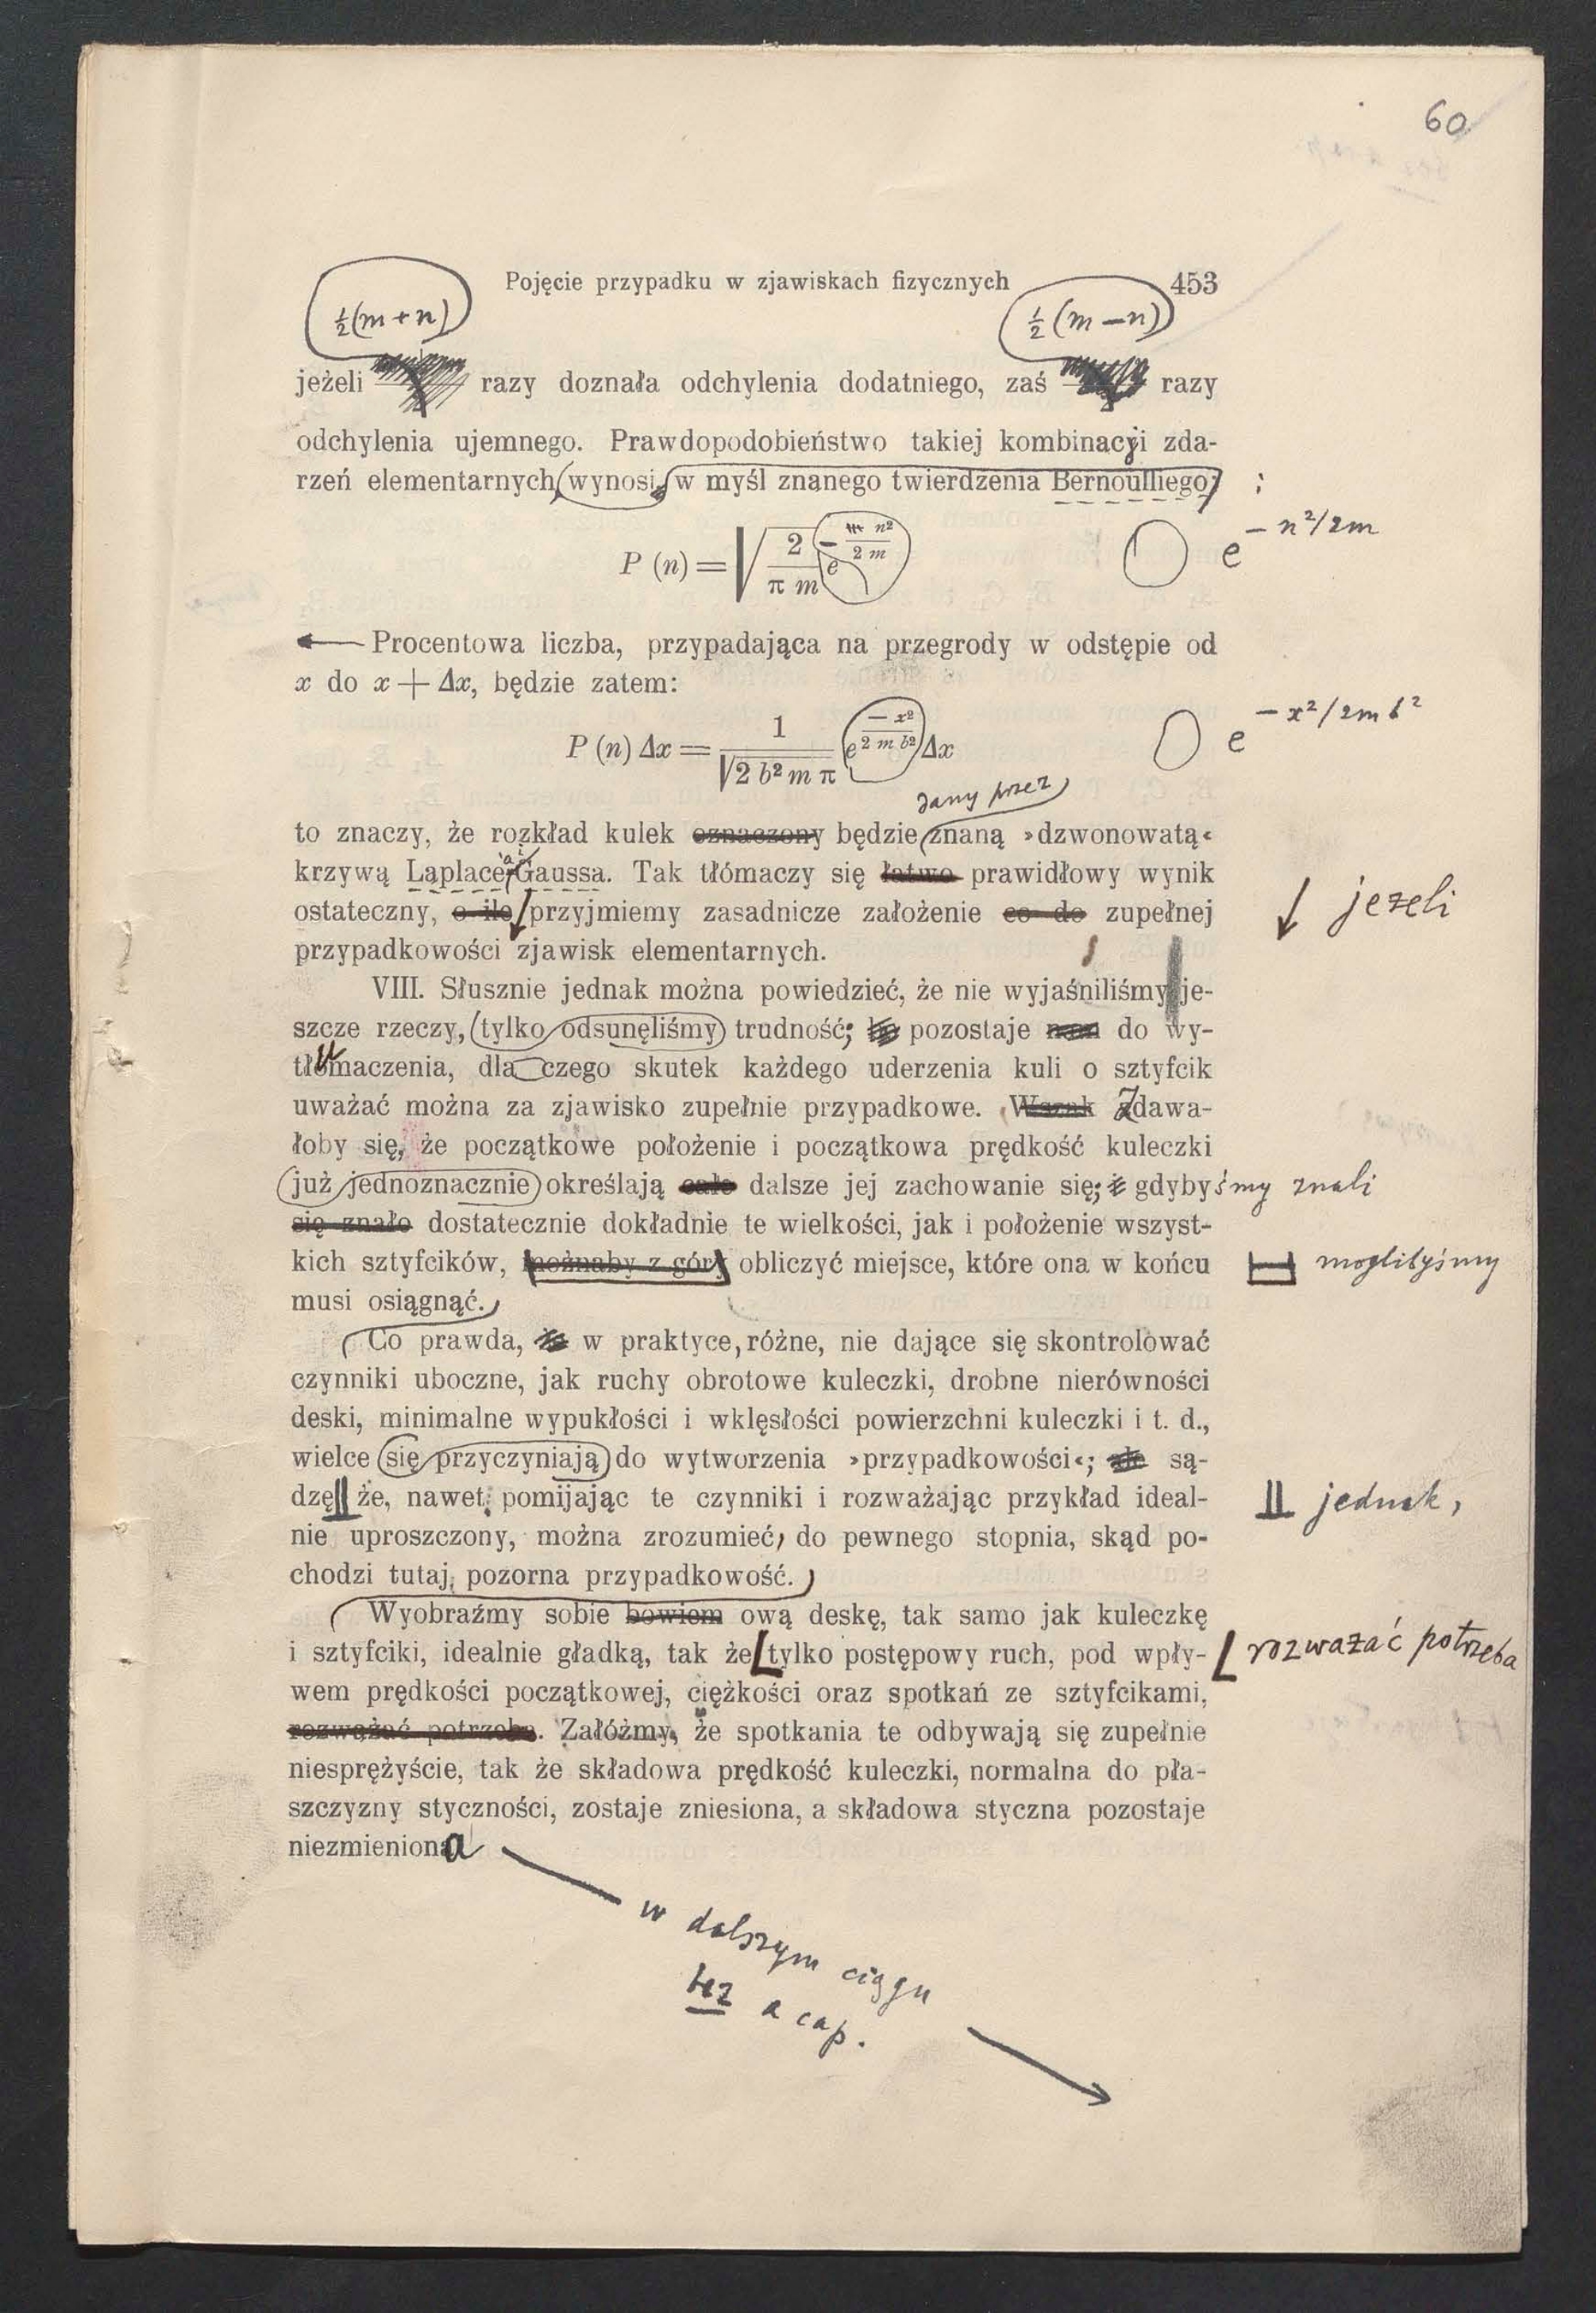 60
Pojęcie przypadku w zjawiskach fizycznych 453
½(m+n) ½(m−n)
jeżeli razy doznała odchylenia dodatniego, zaś razy
odchylenia ujemnego. Prawdopodobieństwo takiej kombinacji zda-
rzeń elementarnych wynosi, w myśl znanego twierdzenia Bernoulliego, :
P (n) = √ 2 / π m e − n² / 2 m e − n²/2m
Procentowa liczba, przypadająca na przegrody w odstępie od
x do x + Δx, będzie zatem:
P (n) Δx = 1 / √2 b² m π e − x² / 2 m b² Δx e − x²/2m b²
dany przez
to znaczy, że rozkład kulek oznaczony będzie znaną »dzwonowatą«
krzywą Laplace'a i Gaussa. Tak tłómaczy się łatwo prawidłowy wynik
ostateczny, o ile przyjmiemy zasadnicze założenie co do zupełnej jeżeli
przypadkowości zjawisk elementarnych.
VIII. Słusznie jednak można powiedzieć, że nie wyjaśniliśmy je-
szcze rzeczy, tylko odsunęliśmy trudność; bo pozostaje nam do wy-
tłumaczenia, dla czego skutek każdego uderzenia kuli o sztyfcik
uważać można za zjawisko zupełnie przypadkowe. Wszak Zdawa-
łoby się, że początkowe położenie i początkowa prędkość kuleczki
już jednoznacznie określają całe dalsze jej zachowanie się; gdybyśmy znali
się znało dostatecznie dokładnie te wielkości, jak i położenie wszyst-
kich sztyfcików, możnaby z góry obliczyć miejsce, które ona w końcu moglibyśmy
musi osiągnąć.
Co prawda, że w praktyce, różne, nie dające się skontrolować
czynniki uboczne, jak ruchy obrotowe kuleczki, drobne nierówności
deski, minimalne wypukłości i wklęsłości powierzchni kuleczki i t. d.,
wielce się przyczyniają do wytworzenia »przypadkowości«; ale są-
dzę że, nawet pomijając te czynniki i rozważając przykład ideal- jednak,
nie uproszczony, można zrozumieć, do pewnego stopnia, skąd po-
chodzi tutaj, pozorna przypadkowość.
Wyobraźmy sobie bowiem ową deskę, tak samo jak kuleczkę
i sztyfciki, idealnie gładką, tak że tylko postępowy ruch, pod wpły- rozważać potrzeba
wem prędkości początkowej, ciężkości oraz spotkań ze sztyfcikami,
rozważać potrzeba. Załóżmy, że spotkania te odbywają się zupełnie
niesprężyście, tak że składowa prędkość kuleczki, normalna do pła-
szczyzny styczności, zostaje zniesiona, a składowa styczna pozostaje
niezmieniona
w dalszym ciągu
bez a cap.